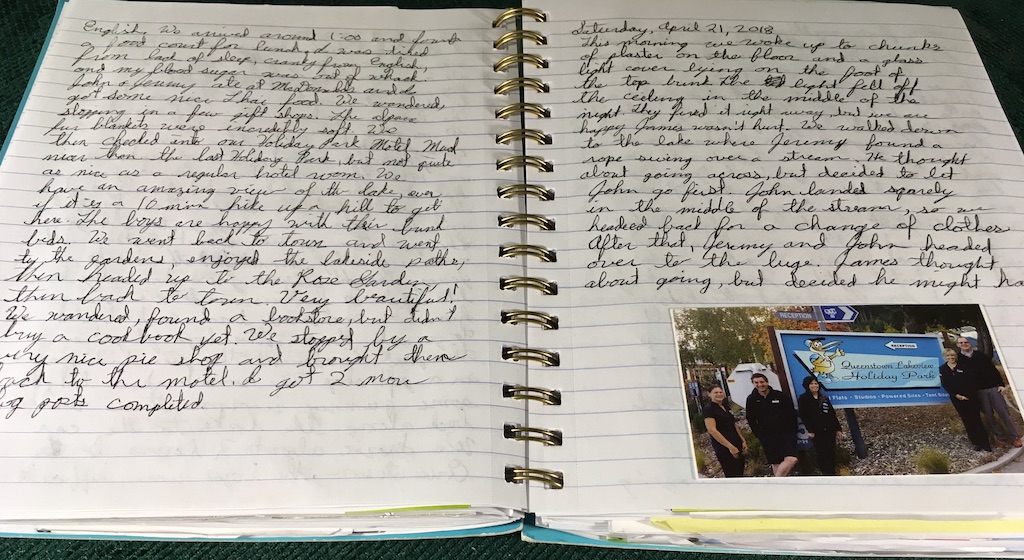 English. We arrived around 1:00 and found
a food court for lunch, I was tired
from lack of sleep, cranky from English,
and my blood sugar was out of whack.
John & Jeremy ate at McDonalds and I
got some nice Thai food. We wandered
stopping in a few gift shops. The alpaca
fur blankets were incredibly soft. We
then checked into our Holiday Park Motel. Much
nicer than the last Holiday Park, but not quite
as nice as a regular hotel room. We
have an amazing view of the lake, even
if it's a 10 min hike up a hill to get
here. The boys are happy with their bunk
beds. We went back to town and went
to the gardens, enjoyed the lakeside paths,
then headed up to the Rose Garden,
then back to town. Very beautiful!
We wandered, found a bookstore, but didn't
buy a cookbook yet. We stopped by a
very nice pie shop and brought them
back to the motel. I got 2 more
posts completed.
Saturday, April 21, 2018
This morning we woke up to chunks
of plaster on the floor and a glass
light cover lying on the foot of
the top bunk. The light fell off
the ceiling in the middle of the
night. They fixed it right away, but we are
happy James wasn't hurt. We walked down
to the lake where Jeremy found a
rope swing over a stream. He thought
about going across, but decided to let
John go first. John landed squarely
in the middle of the stream, so we
headed back for a change of clothes
After that, Jeremy and John headed
over to the luge. James thought
about going, but decided he might ha
RECEPTION
RECEPTION
Queenstown Lakeview
Holiday Park
Flats - Studios - Powered Sites - Tent Sites